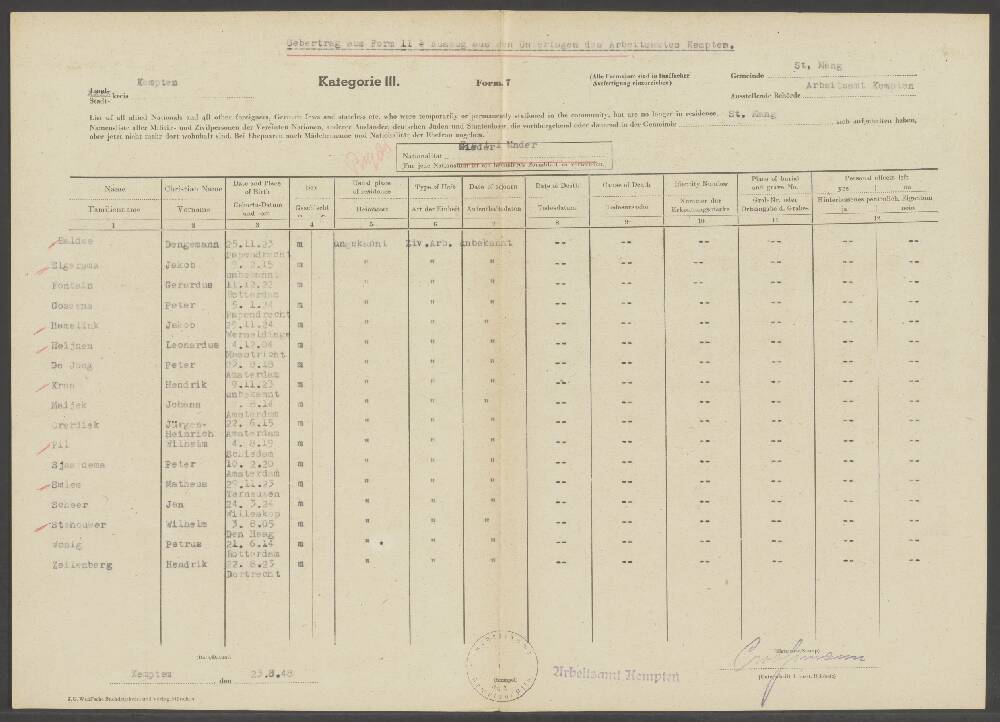 Uebertrag aus Form 11 = Auszug aus den Unterlagen des Arbeitsamtes Kempten.
Kempten
Stadt- kreis
Kategorie III.
Form. 7
(Alle Formulare sind in facher Ausfertigung einzureichen)
Gemeinde St. Mang
Ausstellende Behörde Arbeitsamt Kempten
List of all allied Nationals and all other foreigners, German Jews and stateless etc. who were temporarily or permanently stationed in the community, but are no longer in residence. St. Mang
Namensliste aller Militär- und Zivilpersonen der Vereinten Nationen, anderer Ausländer, deutschen Juden und Staatenloser, die vorübergehend oder dauernd in der Gemeinde sich aufgehalten haben,
aber jetzt nicht mehr dort wohnhaft sind. Bei Ehepaaren auch Mädchenname und Nationalität der Ehefrau angeben.
Nationalität Niederländer
Für jede Nationalität ist ein besonderes Formblatt zu verwenden.
Name Christian Name Date and Place of Birth Sex Usual place of residence Type of Unit Date of sojourn Date of Death Cause of Death Identity Number Place of burial and grave No. Personal effects left yes no
Familienname Vorname Geburts-Datum und -ort Geschlecht Heimatort Art der Einheit Aufenthaltsdaten Todesdatum Todesursache Nummer der Erkennungsmarke Grab-Nr. oder Ortsangabe d. Grabes Hinterlassenes persönlich. Eigentum ja nein
1 2 3 4 5 6 7 8 9 10 11 12
Dengemann 25.11.23 m unbekannt Ziv.Arb. unbekannt -- -- -- -- -- --
Papendrecht
Eigersma Jakob 2.15 m " " " -- -- -- -- -- --
unbekannt
Fontain Gerardus 11.12.22 m " " " -- -- -- -- -- --
Rotterdam
Goosens Peter 5. 1.24 m " " " -- -- -- -- -- --
Papendrecht
Hamelink Jakob 25.11.24 m " " " -- -- -- -- -- --
Heijnen Leonardus 4.12.04 m " " " -- -- -- -- -- --
Maastricht
De Jong Peter 8.18 m " " " -- -- -- -- -- --
Amsterdam
Kran Hendrik 9.11.23 m " " " -- -- -- -- -- --
unbekannt
Meijek Johann 8.14 m " " " -- -- -- -- -- --
Amsterdam
Jürgen- 22. 6.15 m " " " -- -- -- -- -- --
Heinrich Amsterdam
Pil Wilhelm 4. 8.19 m " " " -- -- -- -- -- --
Schiedam
Peter 10. 2.20 m " " " -- -- -- -- -- --
Amsterdam
Smies Matheus 29.11.23 m " " " -- -- -- -- -- --
Scheer Jan 24. 3.24 m " " " -- -- -- -- -- --
Willeskop
Stehouwer Wilhelm 3. 8.05 m " " " -- -- -- -- -- --
Den Haag
Petrus 21. 6.14 m " " " -- -- -- -- -- --
Rotterdam
Zeilenberg Hendrik 22. 8.23 m " " " -- -- -- -- -- --
Dortrecht
(Date/Datum)
Kempten den 23.8.48
(Stempel)
Arbeitsamt Kempten